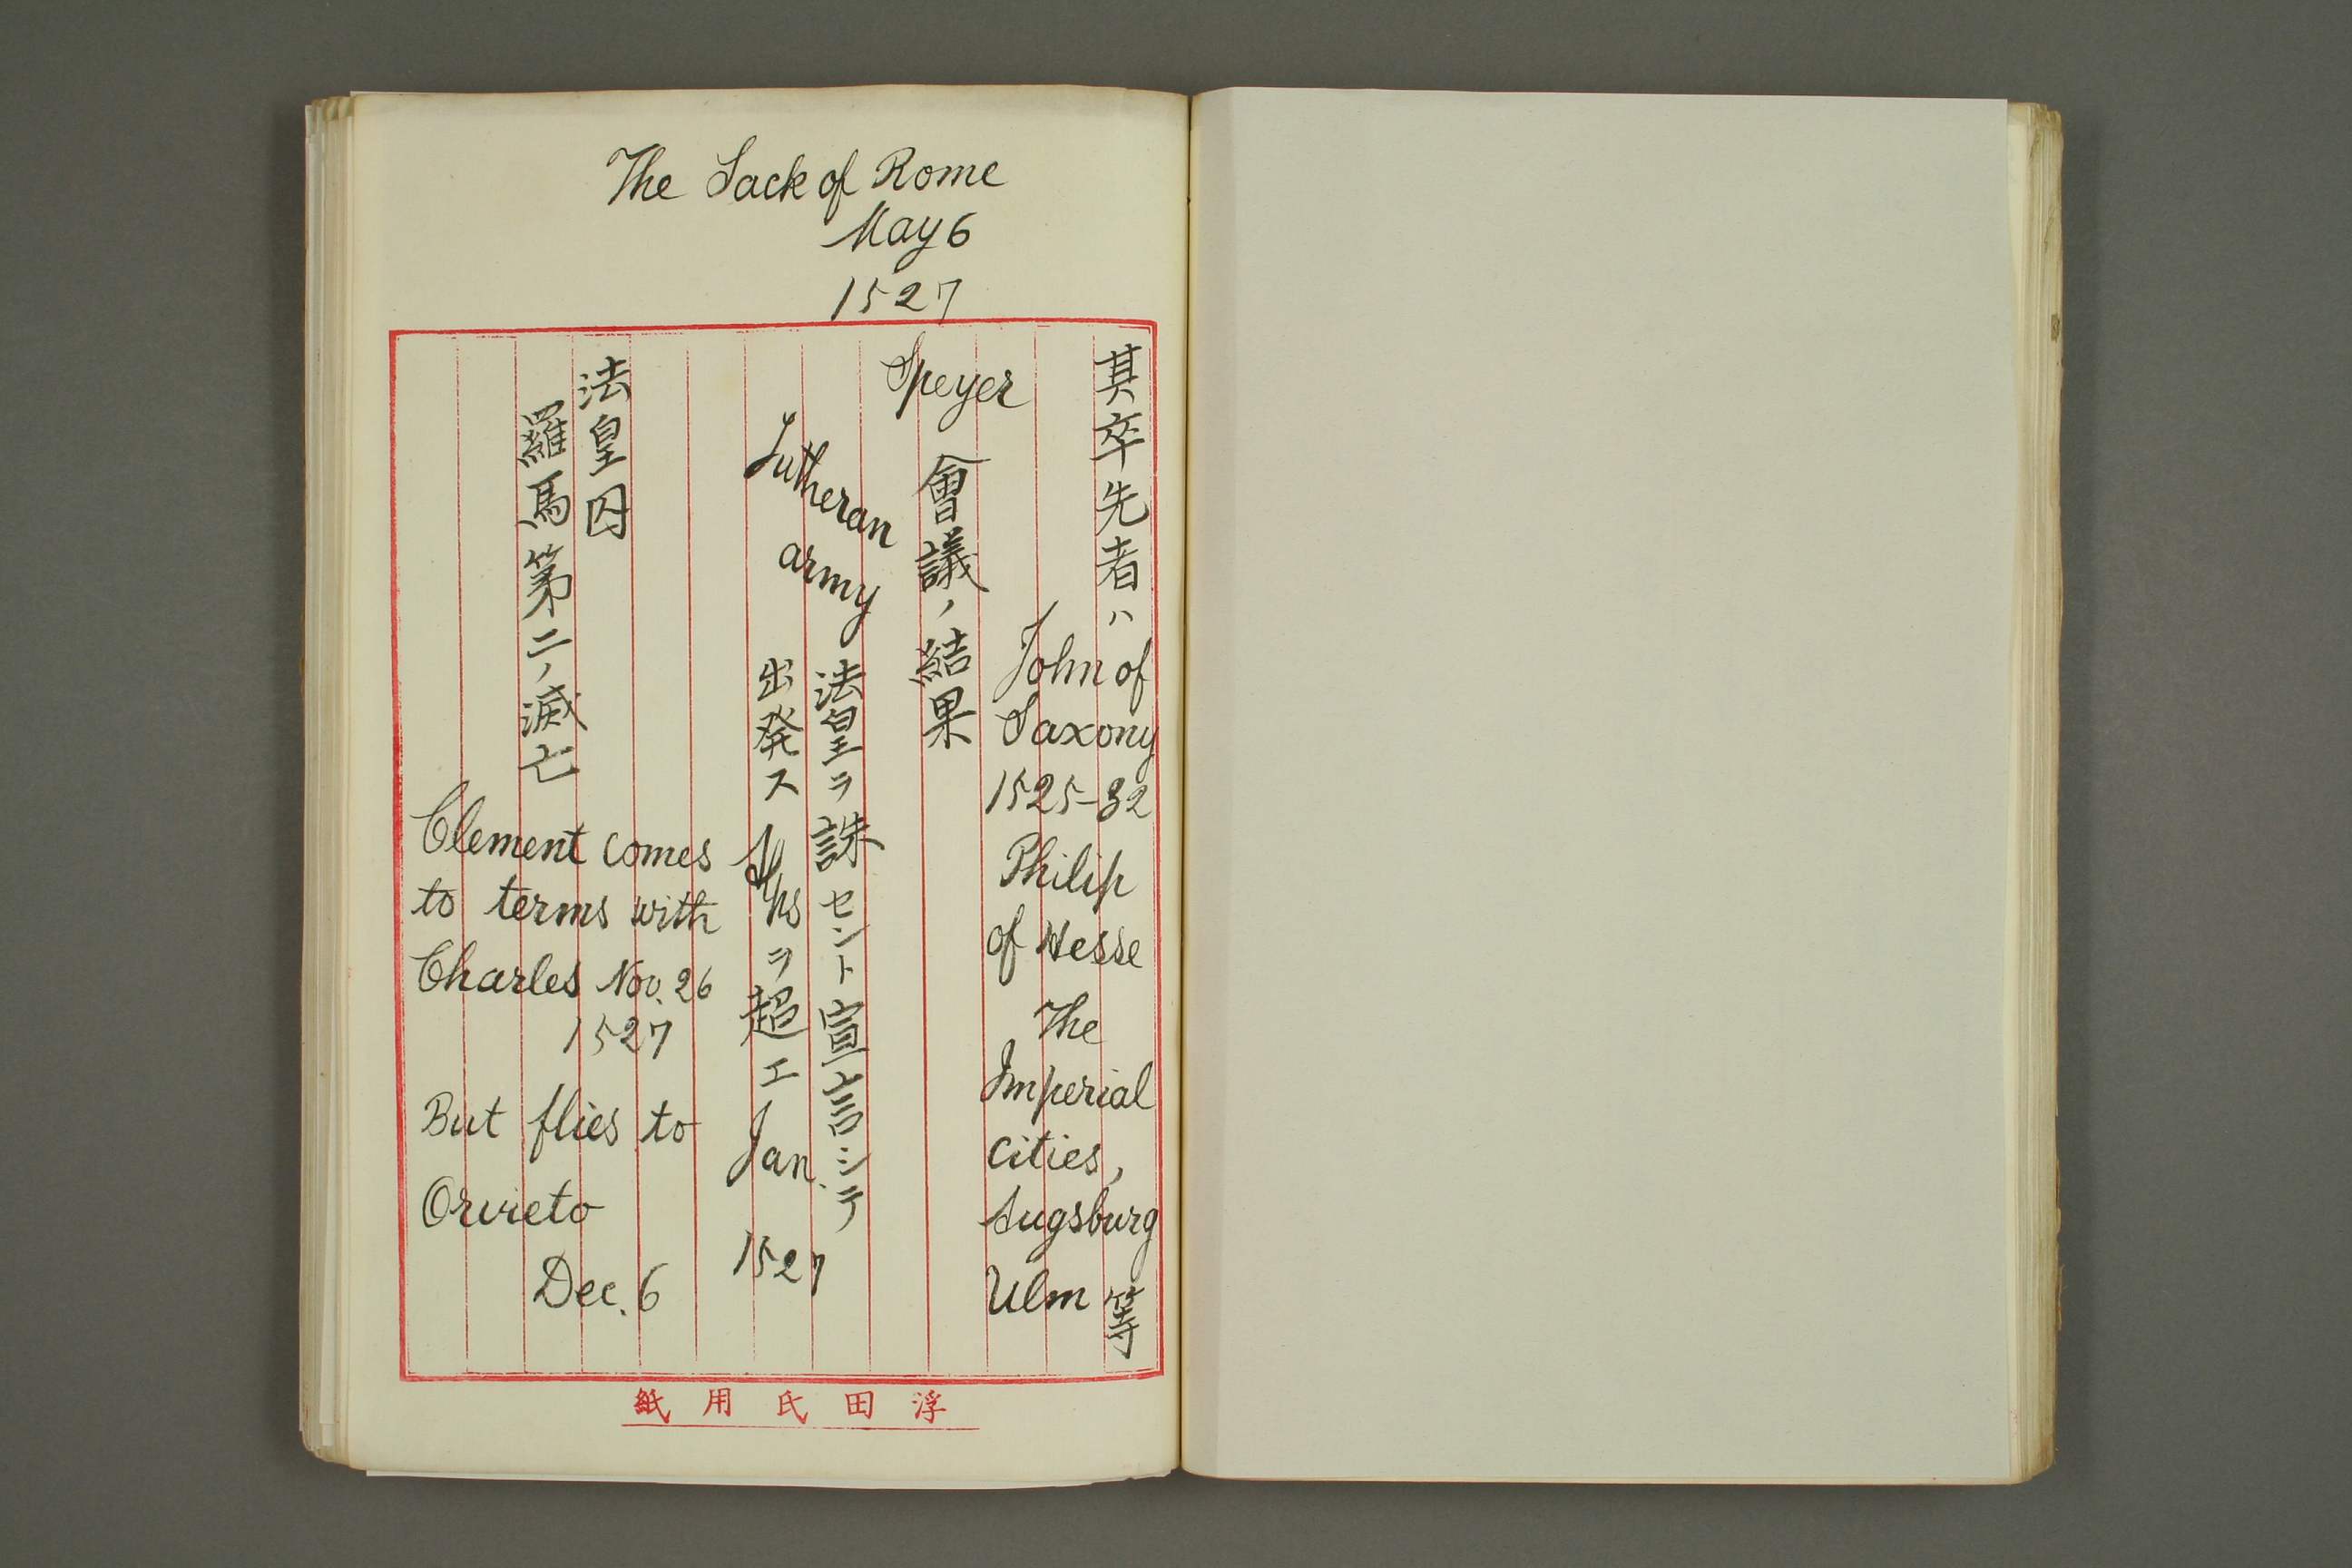 The Sack of Rome
May 6
1527
其卒先者ハ
John of
Saxony
1525-32
Philip
of Hesse
The
Imperial
cities,
Augsburg
Ulm 等
Speyer
會議ノ結果
Lutheran
army
法皇ヲ誅セント宣言シテ
出発ス
ヲ超エ
Jan.
1527
法皇囚
羅馬第二ノ滅亡
Clement comes
to terms with
Charles Nov. 26
1527
But flies to
Orvieto
Dec. 6
浮田氏用紙